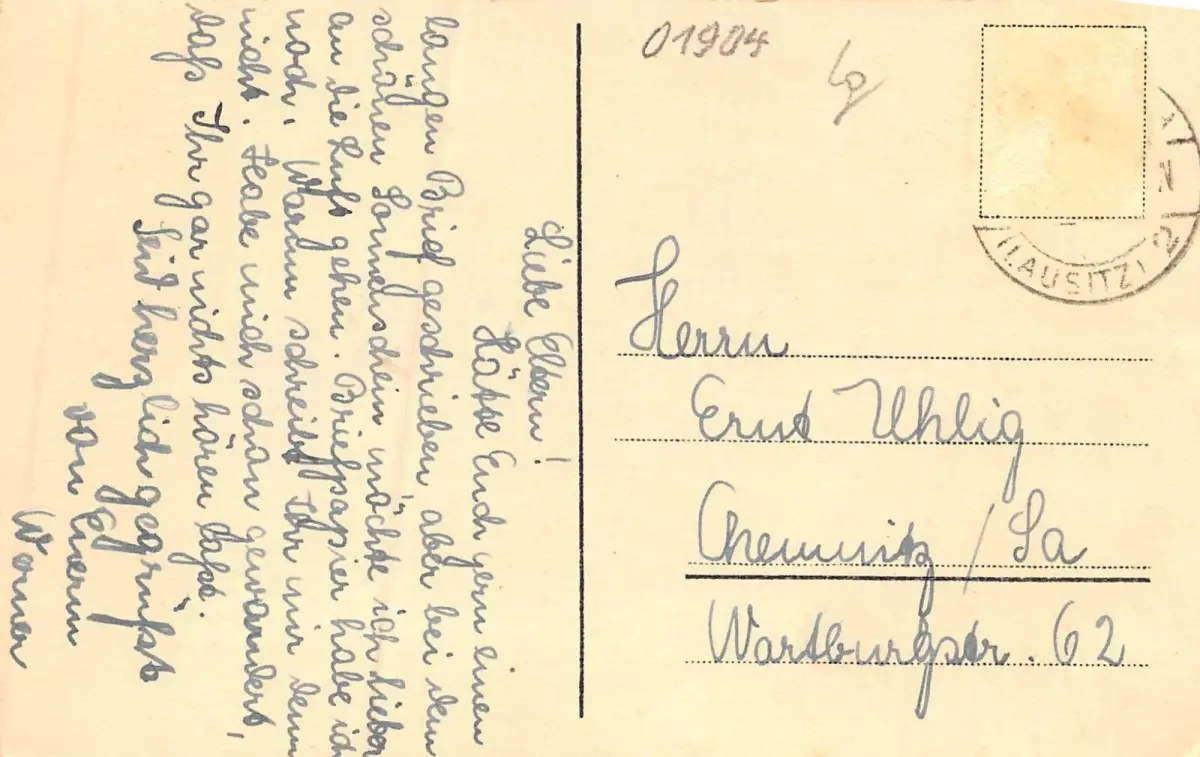 Liebe Eltern!
Hätte Euch gern einen
langen Brief geschrieben, aber bei dem
schönen Sonnenschein möchte ich lieber
an die Luft gehen. Briefpapier habe ich
noch. Warum schreibt Ihr mir denn
nicht. Habe mich schon gewundert,
daß Ihr gar nichts hören laßt.
Seid herzlich gegrüßt
von Eurem
Werner
01904
(LAUSITZ) 2
Herrn
Ernst Uhlig
Chemnitz / Sa
Wartburgstr. 62